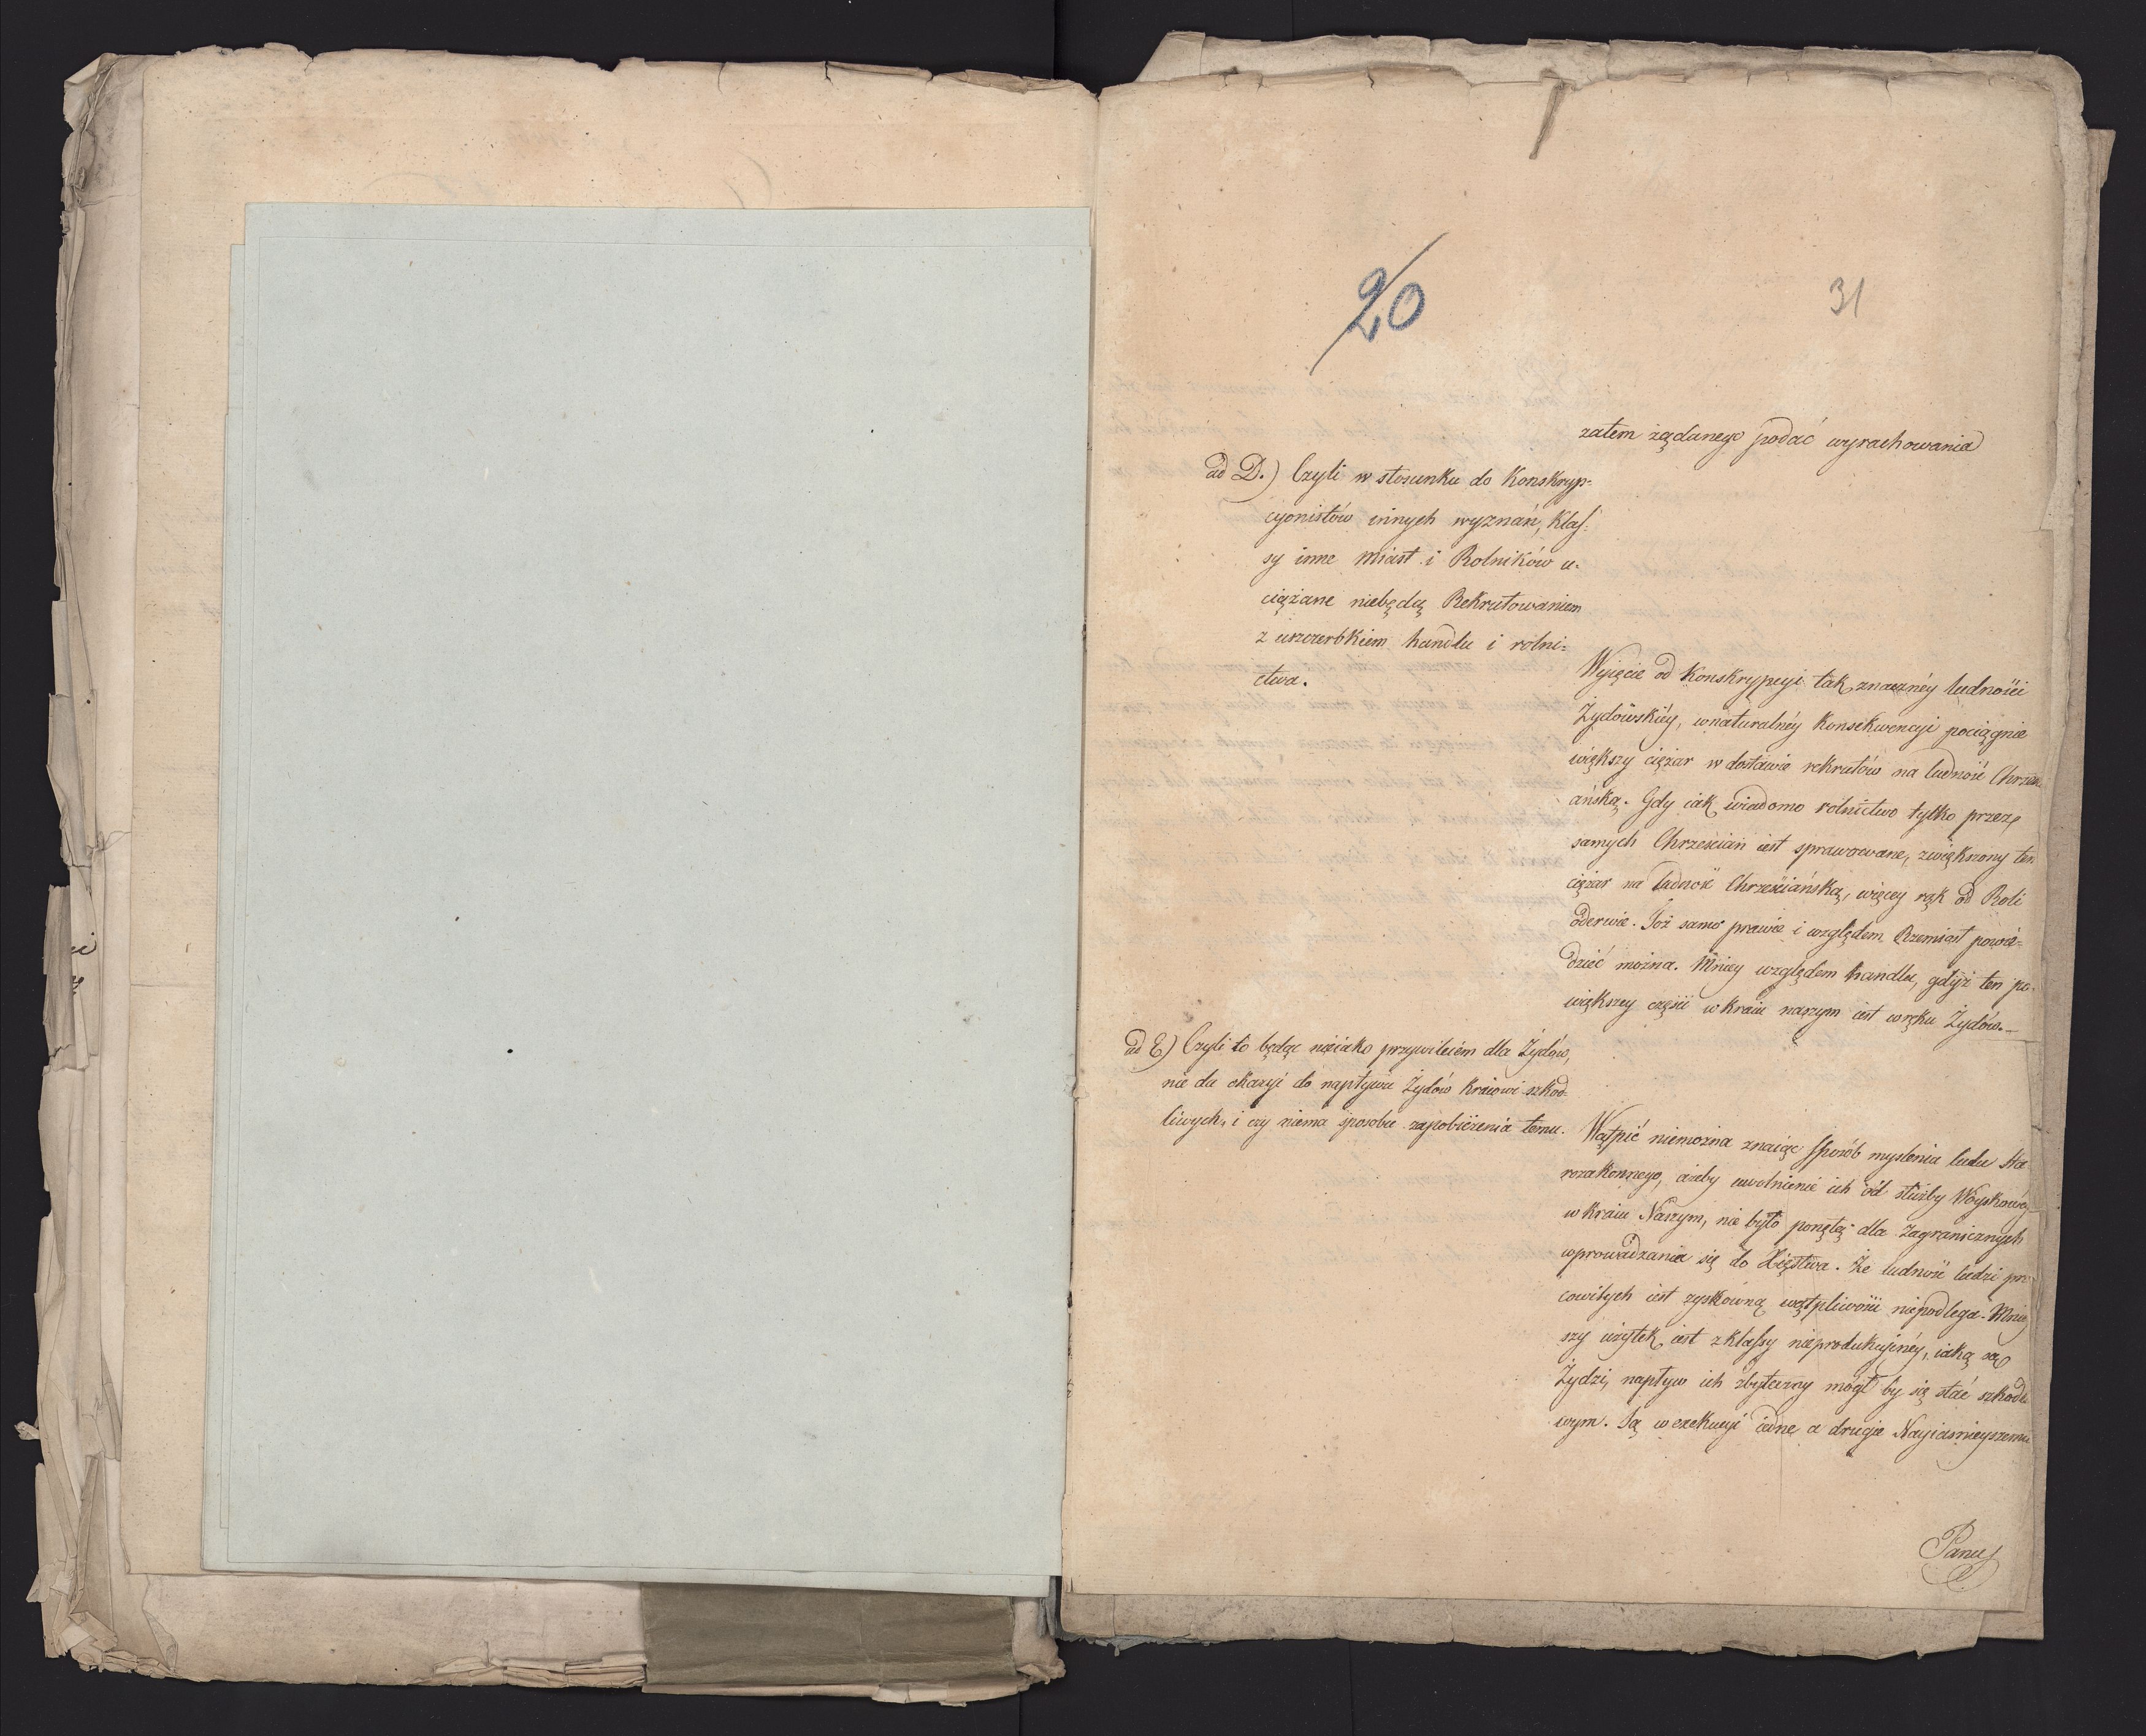 20
31
zatem żądanego podać wyrachowania
ad D.) Czyli w stosunku do Konskryp=
cyonistów innych wyznań, Klas=
sy inne Miast i Rolników u=
ciążane niebędą Rekrutowaniem
z uszczerbkiem handlu i rolni=
ctwa.
Wyięcie od Konskrypcyi tak znaczney ludności
Żydowskiéy, wnaturalnéy Konsekwencyi pociągnie
większy ciężar w dostawie rekrutów na ludność Chrześci
ańską. Gdy iak wiadomo rolnictwo tylko przez
samych Chrześcian iest sprawowane, zwiększony ten
ciężar na ludność Chrześciańską, więcey rąk od Roli
oderwie. Toż samo prawie i względem Rzemiosł powie=
dzieć można. Mniey względem handlu, gdyż ten po
większey części w kraiu naszym iest wręku Żydów.—
ad E) Czyli to będąc nieiako przywileiem dla Żydów,
nie da okazyi do napływu Żydów Kraiowi szkod=
liwych, i czy niema sposobu zapobieżenia temu.
Wątpić niemożna znaiąc sposób myslenia ludu sta
rozakonnego, ażeby uwolnienie ich od służby Woyskowéy
w kraiu Naszym, nie było ponętą dla Zagranicznych
wprowadzania się do Xięstwa. Że ludność ludzi pra
cowitych iest zyskowną wątpliwości niepodlega. Mniey
szy użytek iest z klassy nieprodukcyinéy, iaką są
Żydzi, napływ ich zbyteczny mógł by się stać szkodli
wym. Są w exekucyi iedne a drugie Nayiasnieyszemu
Panu